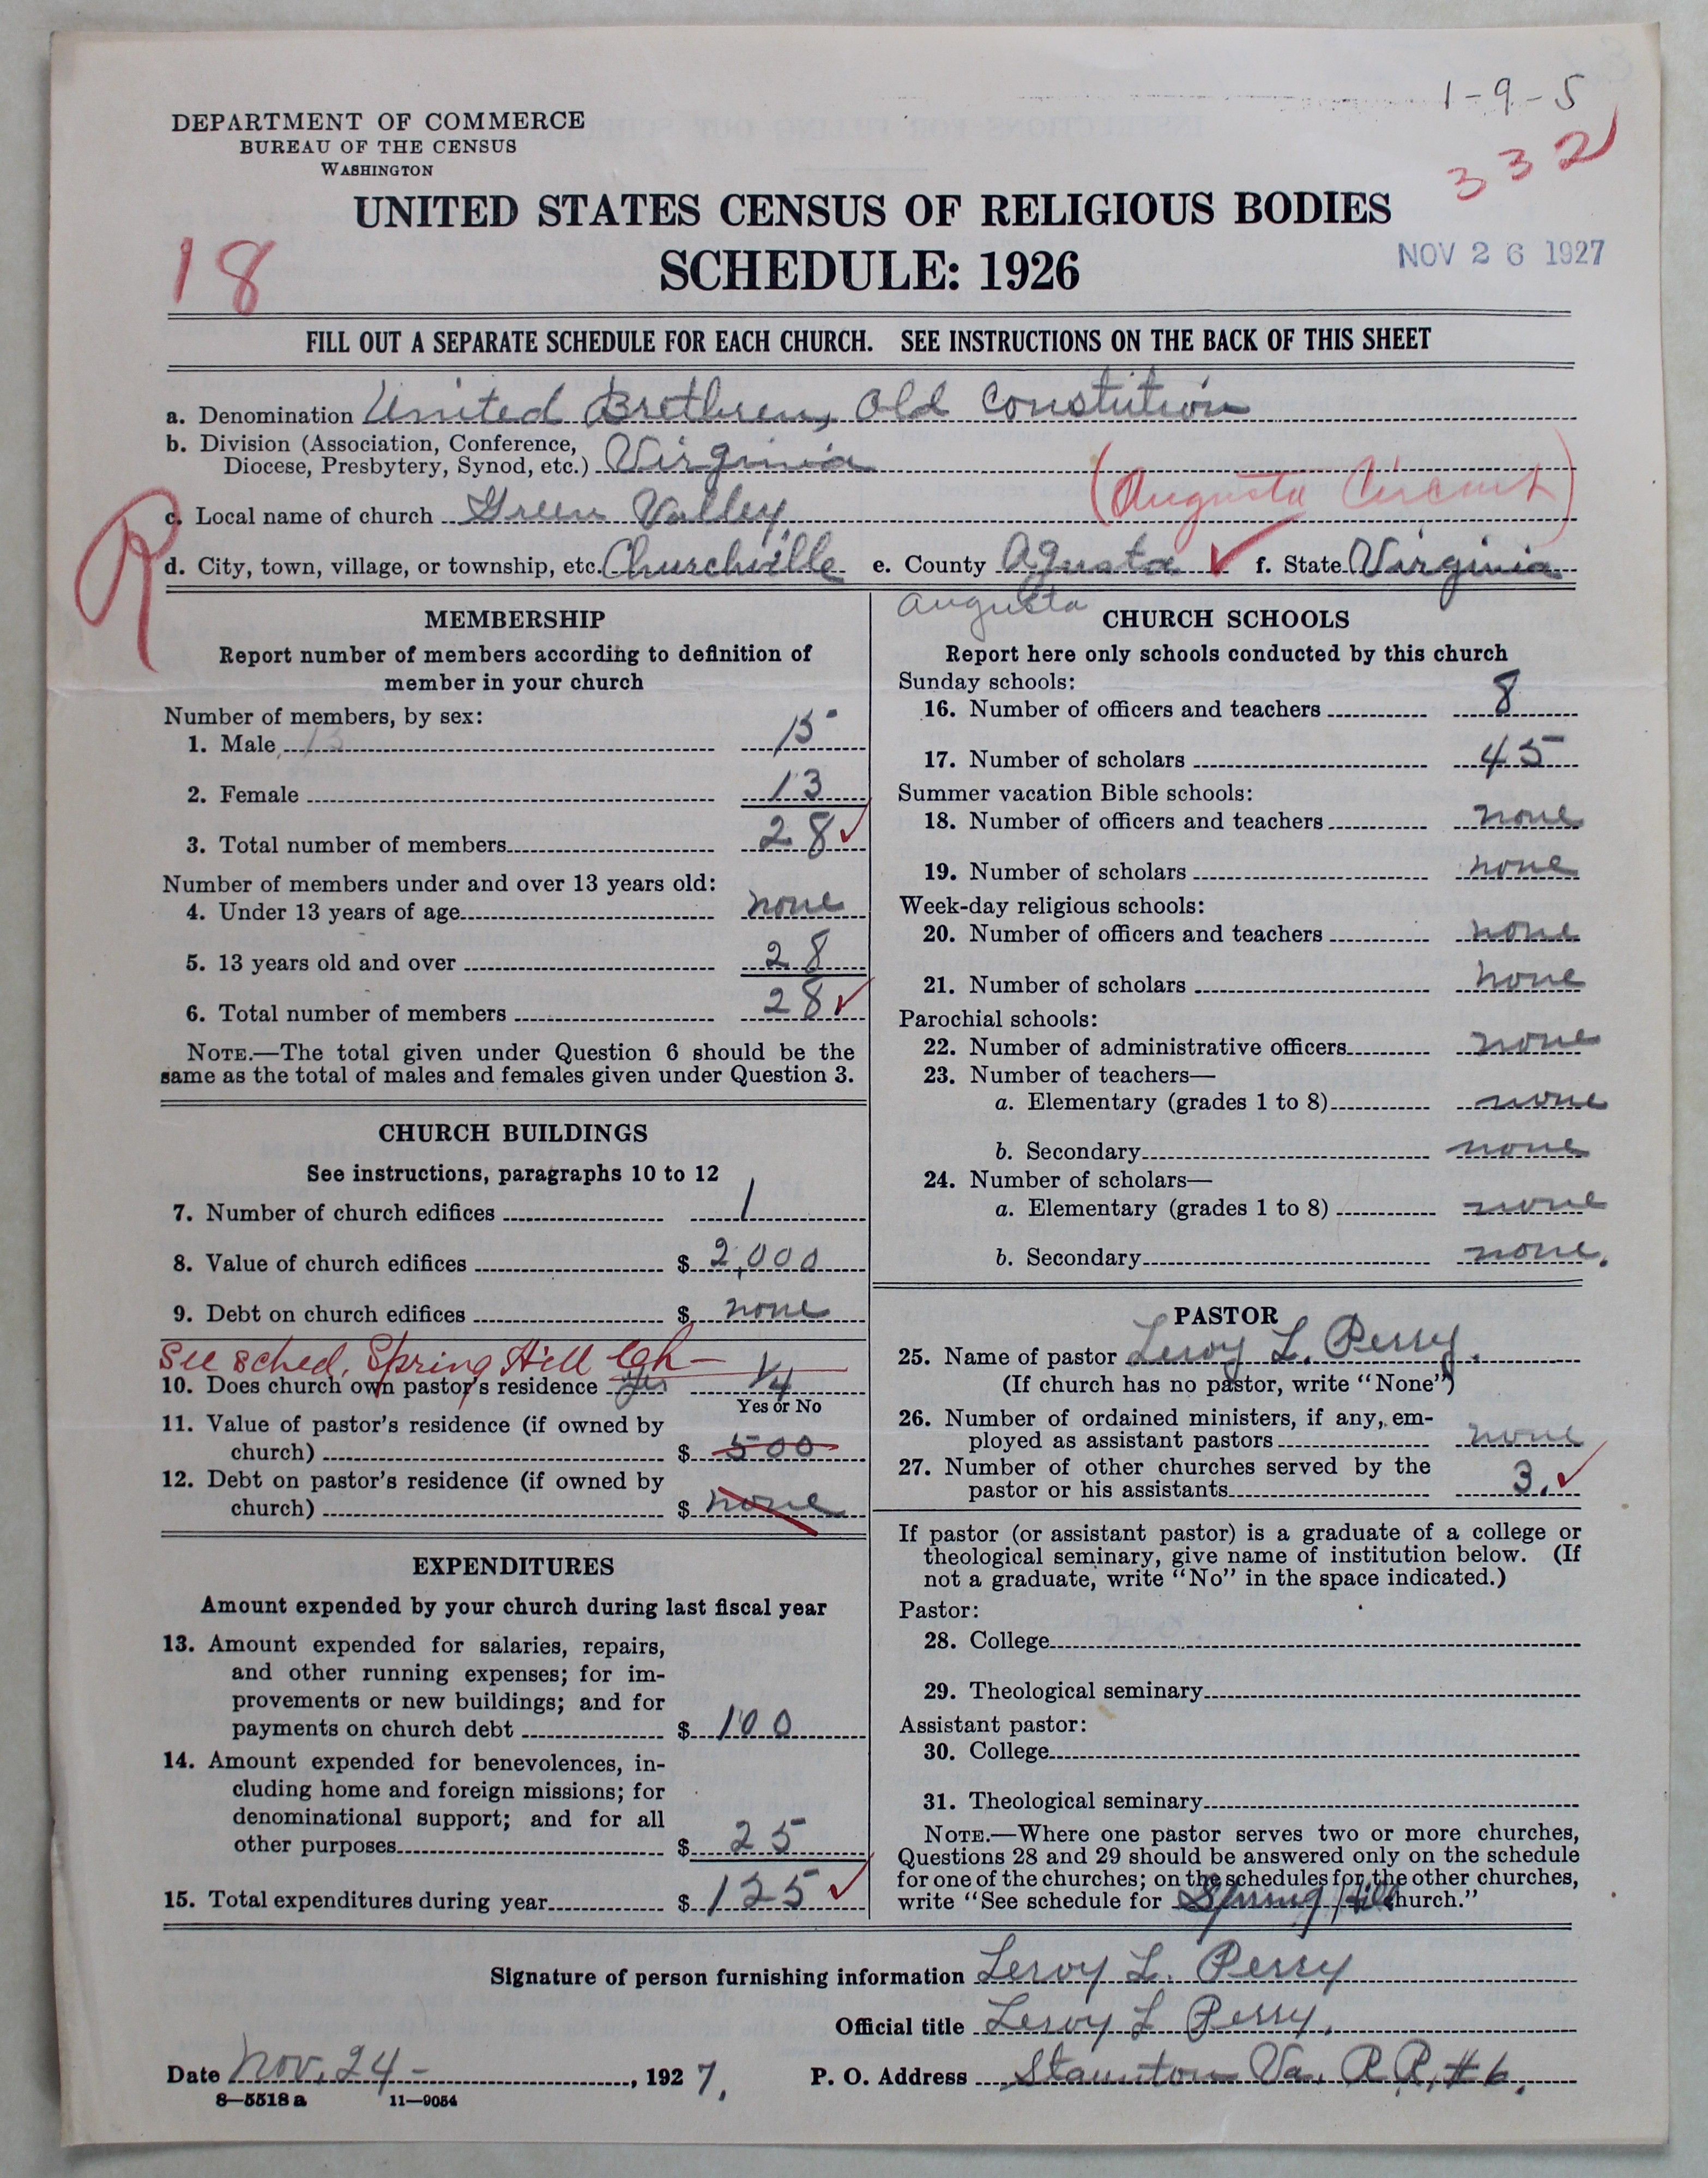 1-9-5
DEPARTMENT OF COMMERCE
BUREAU OF THE CENSUS
WASHINGTON
332
UNITED STATES CENSUS OF RELIGIOUS BODIES
18
SCHEDULE: 1926
NOV 26 1927
FILL OUT A SEPARATE SCHEDULE FOR EACH CHURCH. SEE INSTRUCTIONS ON THE BACK OF THIS SHEET
a. Denomination United Brethren, Old Constution
b. Division (Association, Conference,
Diocese, Presbytery, Synod, etc.) Virginia
(Augusta Circuit)
R
c. Local name of church Green Valley
d. City, town, village, or township, etc. Churchville e. County Agusta f. State Virginia
Augusta
MEMBERSHIP
Report number of members according to definition of
member in your church
Number of members, by sex:
1. Male 13 15
2. Female 13
3. Total number of members 28
Number of members under and over 13 years old:
4. Under 13 years of age none
5. 13 years old and over 28
6. Total number of members 28
NOTE.—The total given under Question 6 should be the
same as the total of males and females given under Question 3.
CHURCH BUILDINGS
See instructions, paragraphs 10 to 12
7. Number of church edifices 1
8. Value of church edifices $ 2,000
9. Debt on church edifices $ none
See sched. Spring Hill Ch—
10. Does church own pastor's residence yes 1/4
Yes or No
11. Value of pastor's residence (if owned by
church) $ 500
12. Debt on pastor's residence (if owned by
church) $ none
EXPENDITURES
Amount expended by your church during last fiscal year
13. Amount expended for salaries, repairs,
and other running expenses; for im-
provements or new buildings; and for
payments on church debt $ 100
14. Amount expended for benevolences, in-
cluding home and foreign missions; for
denominational support; and for all
other purposes $ 25
15. Total expenditures during year $ 125
CHURCH SCHOOLS
Report here only schools conducted by this church
Sunday schools:
16. Number of officers and teachers 8
17. Number of scholars 45
Summer vacation Bible schools:
18. Number of officers and teachers none
19. Number of scholars none
Week-day religious schools:
20. Number of officers and teachers none
21. Number of scholars none
Parochial schools:
22. Number of administrative officers none
23. Number of teachers—
a. Elementary (grades 1 to 8) none
b. Secondary none
24. Number of scholars—
a. Elementary (grades 1 to 8) none
b. Secondary none.
PASTOR
25. Name of pastor Leroy L. Perry.
(If church has no pastor, write "None")
26. Number of ordained ministers, if any, em-
ployed as assistant pastors none
27. Number of other churches served by the
pastor or his assistants 3.
If pastor (or assistant pastor) is a graduate of a college or
theological seminary, give name of institution below. (If
not a graduate, write "No" in the space indicated.)
Pastor:
28. College no.
29. Theological seminary
Assistant pastor:
30. College
31. Theological seminary
NOTE.—Where one pastor serves two or more churches,
Questions 28 and 29 should be answered only on the schedule
for one of the churches; on the schedules for the other churches,
write "See schedule for Spring Hill church."
Signature of person furnishing information Leroy L. Perry
Official title Leroy L Perry.
Date Nov. 24-, 1927. P. O. Address Staunton Va. R R, #6.
8—5518 a 11—9054